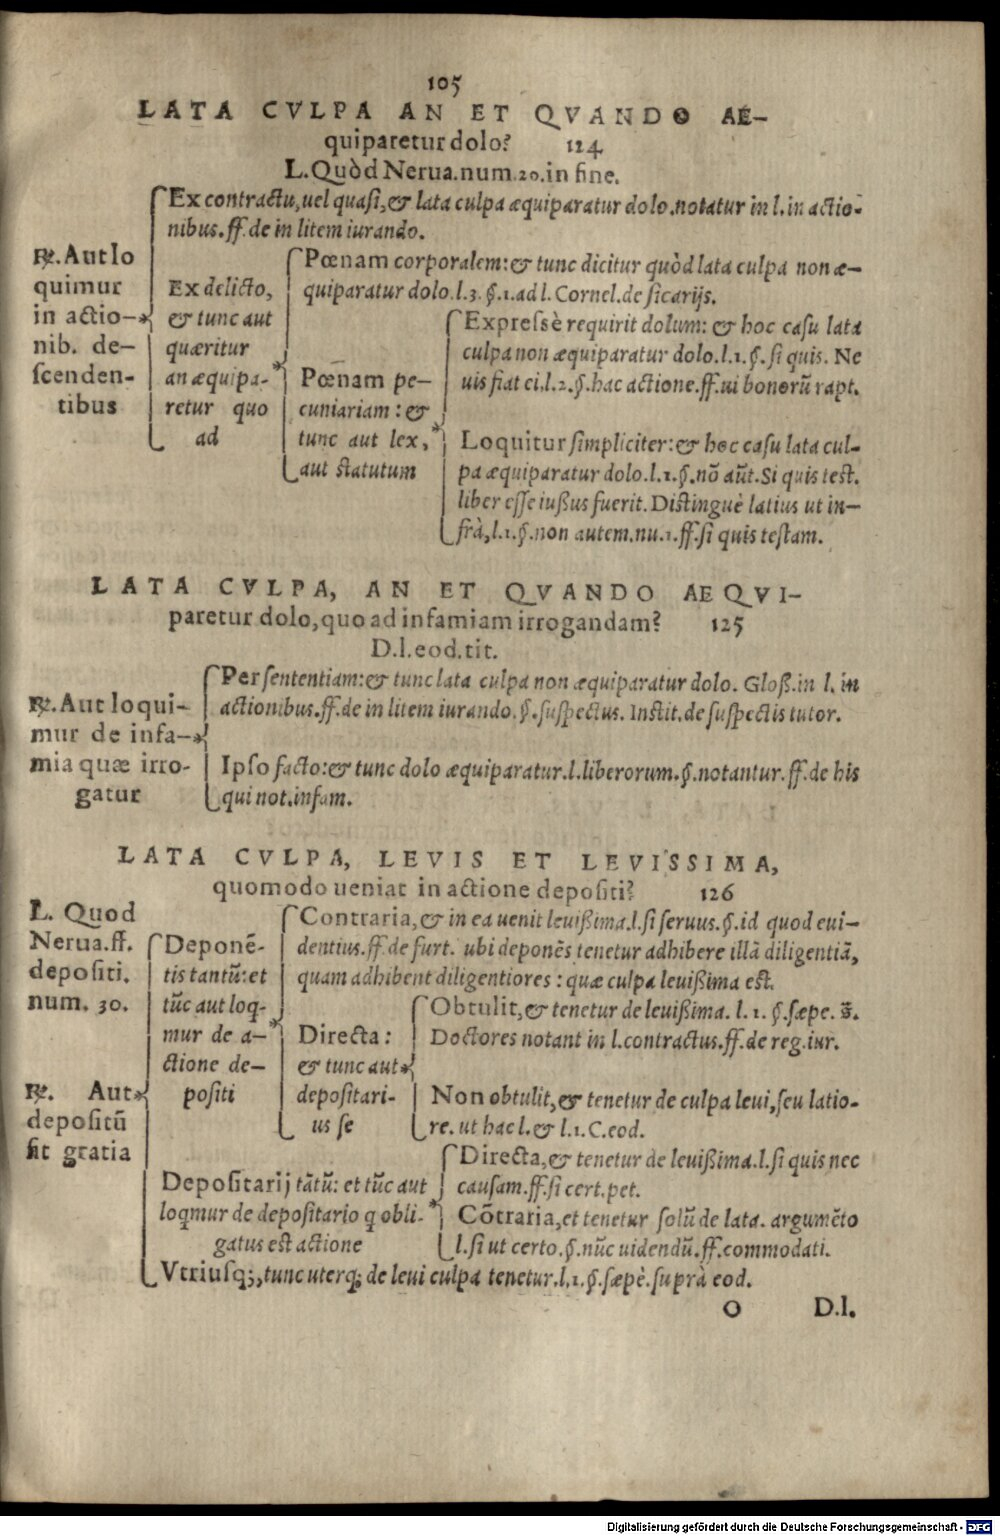 105
LATA CVLPA AN ET QVANDO AE-
quiparetur dolo? 124
L. Quòd Nerua.num.20.in fine.
Ex contractu, uel quasi, & lata culpa æquiparatur dolo.notatur in l.in actio-
nibus.ff.de in litem iurando.
℞. Aut lo
quimur
in actio-
nib. de-
scenden-
tibus
Ex delicto,
& tunc aut
quæritur
an æquipa-
retur quo
ad
Pœnam corporalem: & tunc dicitur quòd lata culpa non æ-
quiparatur dolo.l.3.§.1.ad l. Cornel.de sicarijs.
Pœnam pe-
cuniariam: &
tunc aut lex,
aut statutum
Expressè requirit dolum: & hoc casu lata
culpa non æquiparatur dolo.l.1.§.si quis. Ne
uis fiat ei.l.2.§.hac actione.ff.ui bonorū rapt.
Loquitur simpliciter: & hoc casu lata cul-
pa æquiparatur dolo.l.1.§.nō aūt.Si quis test.
liber esse iußus fuerit. Distinguè latius ut in-
frà,l.1.§.non autem.nu.1.ff.si quis testam.
LATA CVLPA, AN ET QVANDO AEQVI-
paretur dolo, quo ad infamiam irrogandam? 125
D.l.eod.tit.
℞. Aut loqui-
mur de infa-
mia quæ irro-
gatur
Per sententiam: & tunc lata culpa non æquiparatur dolo. Gloß.in l. in
actionibus.ff.de in litem iurando.§.suspectus. Instit.de suspectis tutor.
Ipso facto: & tunc dolo æquiparatur.l.liberorum.§.notantur.ff.de his
qui not.infam.
LATA CVLPA, LEVIS ET LEVISSIMA,
quomodo ueniat in actione depositi? 126
L. Quod
Nerua.ff.
depositi.
num. 30.
℞. Aut
depositū
sit gratia
Deponē-
tis tantū: et
tūc aut loq-
mur de a-
ctione de-
positi
Contraria, & in ea uenit leuißima.l.si seruus.§.id quod eui-
dentius.ff.de furt. ubi deponēs tenetur adhibere illā diligentiā,
quam adhibent diligentiores: quæ culpa leuißima est.
Directa:
& tunc aut
depositari-
us se
Obtulit, & tenetur de leuißima. l. 1. §.sæpe.
Doctores notant in l.contractus.ff.de reg.iur.
Non obtulit, & tenetur de culpa leui, seu latio-
re. ut hac l. & l.1.C.eod.
Depositarij tātū: et tūc aut
loqmur de depositario q obli-
gatus est actione
Directa, & tenetur de leuißima.l.si quis nec
causam.ff.si cert.pet.
Cōtraria, et tenetur solū de lata. argumēto
l.si ut certo.§.nūc uidendū.ff.commodati.
Vtriusq;, tunc uterq; de leui culpa tenetur.l.1.§.sæpè.suprà eod.
O D.l.
Digitalisierung gefördert durch die Deutsche Forschungsgemeinschaft - DFG